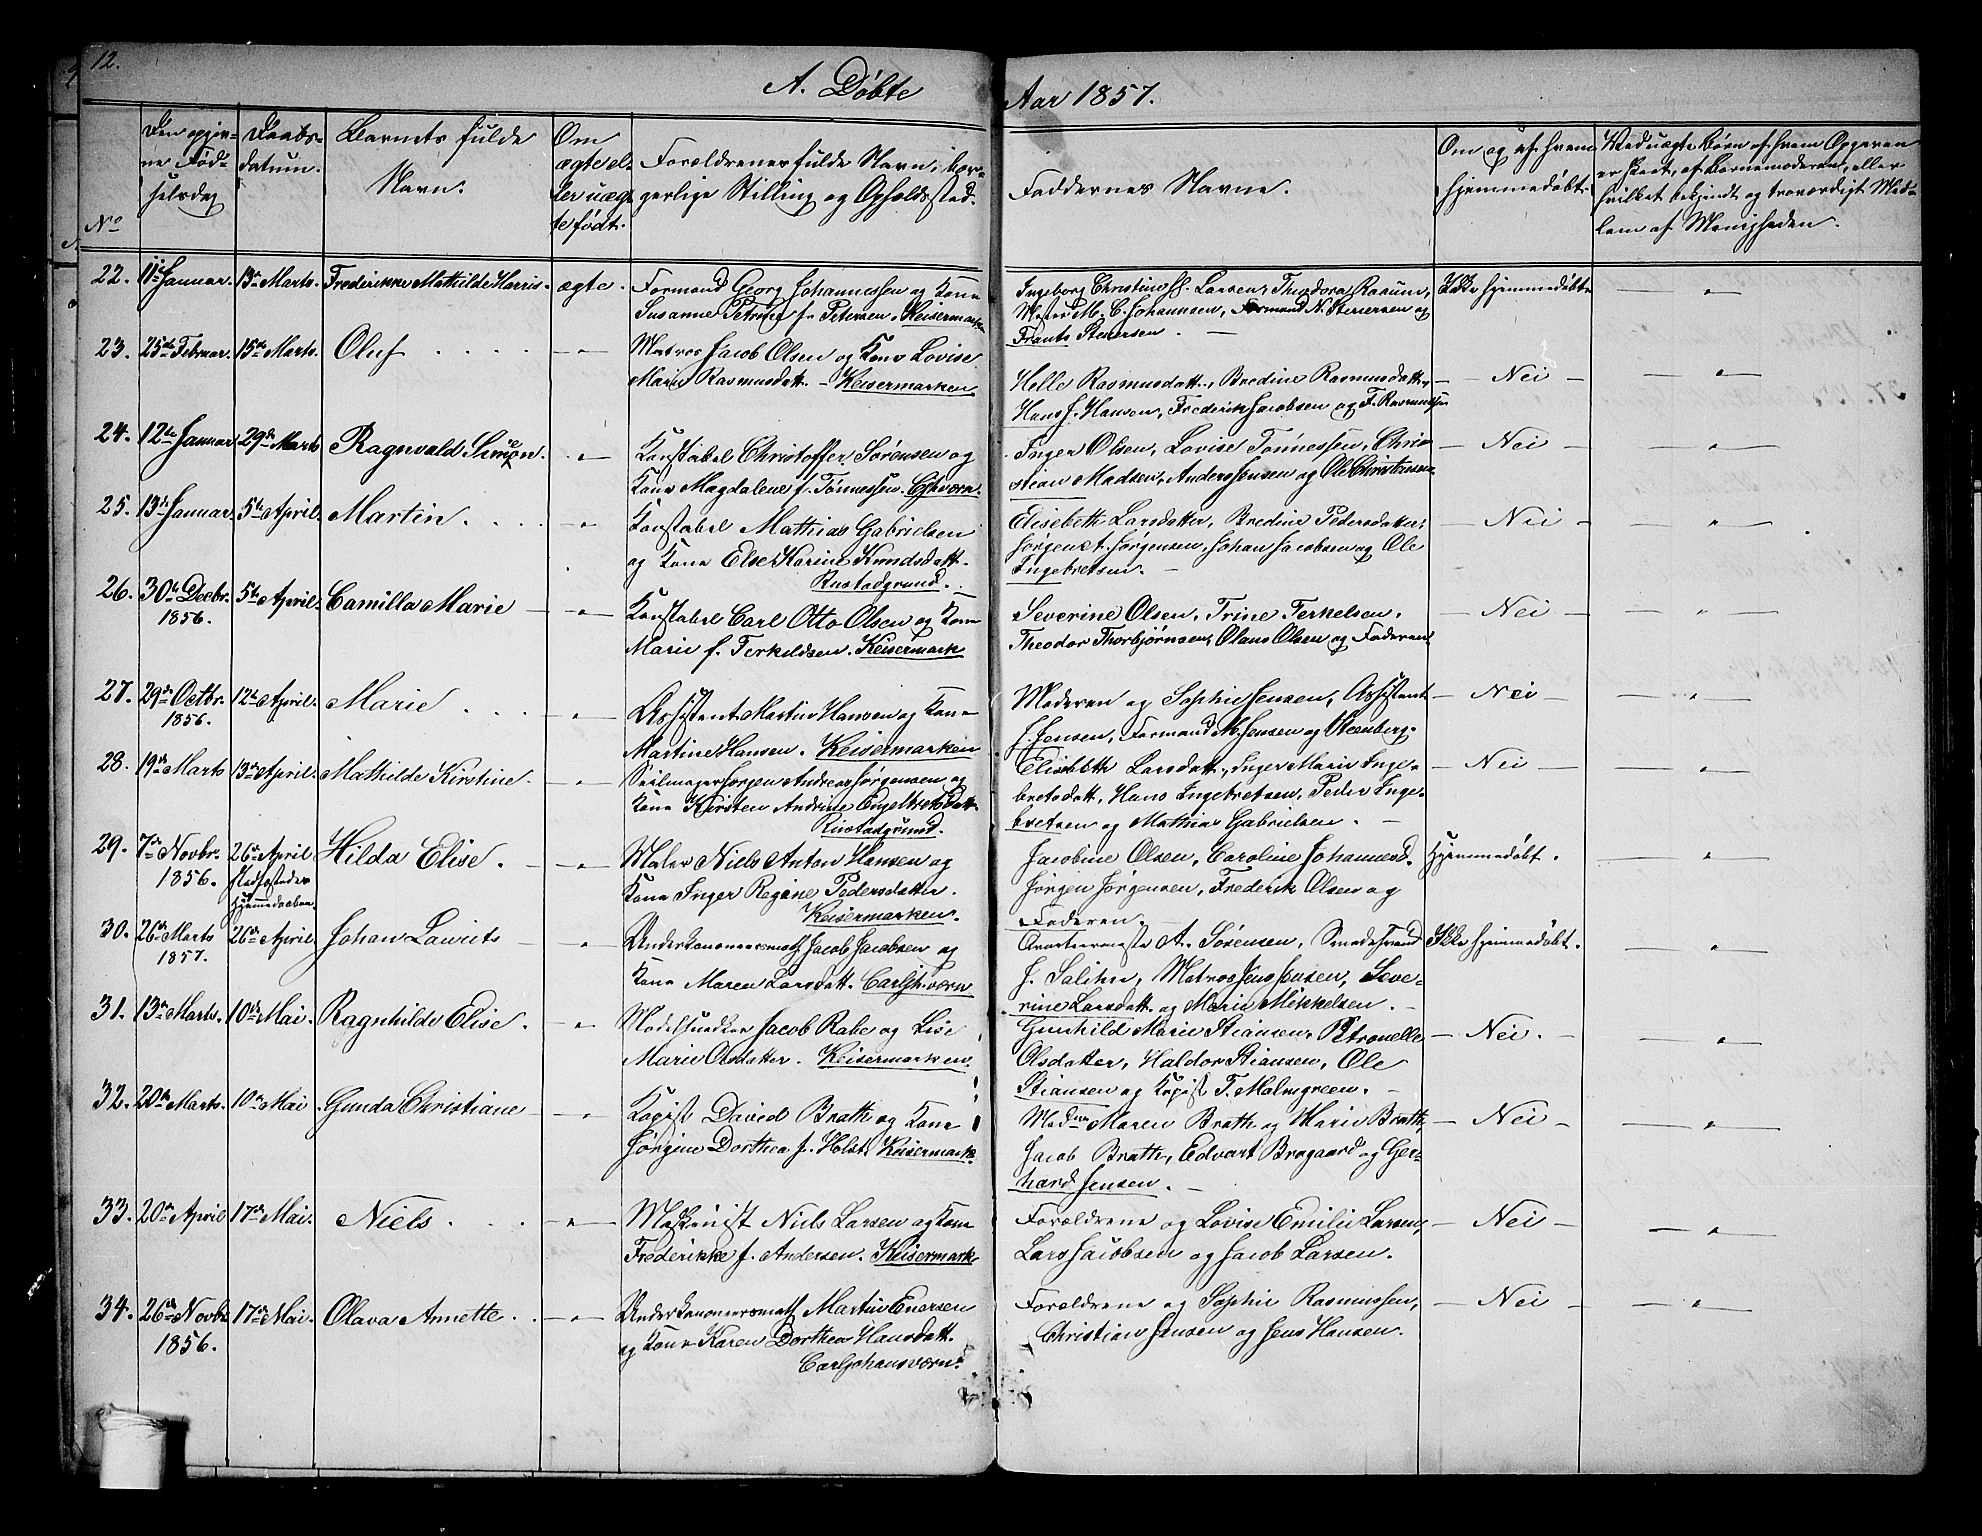 12.
A. Döbte
Aar 1857.
No
Den opgiv-
ne Föd-
selsdag
Daabs-
datum.
Barnets fulde
Navn.
Om
ægte el-
ler uæg-
te födt.
Forældrenes fulde Navn, bor-
gerlige Stilling og Opholdssted.
Faddernes Navne.
Om og af hvem
hjemmedöbt.
Ved uægte Börn af hvem Opgaven
er skeet, af Barnemoderen, eller
hvilket bekjendt og troværdigt Med-
lem af Menigheden.
22. 11te Januar. 15de Marts. Frederikke Mathilde Harris. ægte.
Formand Georg Johannessen og Kone
Susanne Petrine f. Petersen. Keisermarken
Ingeborg Christine Larsen, Theodora
M. C. Johannsen, Formand N. Stenersen og
Frants Stenersen.
Ikke hjemmedöbt
23. 25de Februar. 15de Marts. Oluf
Matros Jacob Olsen og Kone Lovise
Marie Rasmusdatt. - Keisermarken
Helle Rasmusdatt., Bredine Rasmusdatt.,
Hans J. Hansen, Frederik Jacobsen og F. Rasmussen
- Nei -
24. 12te Januar 29de Marts Ragnvald Simon.
Konstabel Christoffer Sörensen og
Kone Magdalene f. Tönnessen. C. Jh. værn.
Inger Olsen, Lovise Tönnessen, Chri-
stian Madsen, Anders Jensen og Ole Christensen
- Nei -
25. 13de Januar. 5te April. Martin
Konstabel Mathias Gabrielsen
og Kone Else Karine Knudsdatt.
Rustadgrund.
Elisebeth Larsdatter, Bredine Pedersdatter,
Jörgen A. Jörgensen, Johan Jacobsen og Ole
Ingebretsen.
- Nei -
26. 30te Decbr. 1856. 5te April. Camilla Marie
Konstabel Carl Otto Olsen og Kone
Marie f. Terkeldsen. Keisermark
Severine Olsen, Trine Terkelsen,
Theodor Thorbjörnsen, Olaus Olsen og Faderen
- Nei -
27. 29de Octbr. 1856. 12te April. Marie
Assistent Martin Hansen og Kone
Martine Hansen. Keisermarken
Moderen og Sophie Jensen, Assistent
J. Jensen, Formand M. Jensen og Steenberg.
- Nei -
28. 19de Marts 13de April. Mathilde Kirstine.
Seilmager Jörgen Andreas Jörgensen og
Kone Kirsten Andrine Engelbretsdatt.
Rustadgrund.
Elisabeth Larsdatt., Inger Marie Inge-
bretsdatt., Hans Ingebretsen, Peder Inge-
bretsen og Mathias Gabrielsen.
- Nei -
29. 7de Novbr. 1856. 26de April Stadfæstedes Hjemmedaaben. Hilda Elise.
Maler Niels Anton Hansen og
Kone Inger Regine Pedersdatter.
Keisermarken.
Jacobine Olsen, Caroline Johannesd.
Jörgen Jörgensen, Frederik Olsen og
Faderen.
Hjemmedöbt.
30. 26de Marts 1857. 26de April. Johan Lavrits
Underkanoneersmath Jacob Jacobsen og
Kone Maren Larsdatt. Carljh. værn
A. Sörensen,
J. Salihn, Matros Jens Jensen, Seve-
rine Larsdatt. og Maria Mikkelsen.
Ikke hjemmedöbt.
31. 13de Marts. 10de Mai. Ragnhilde Elise.
Modelsnedker Jacob Rabe og Lise
Marie Olsdatter. Keisermarken
Gunhild Marie Stiansen, Petronelle
Olsdatter, Haldor Stiansen, Ole
Stiansen og Kopist T. Malmgreen.
- Nei. -
32. 20de Marts. 10de Mai. Gunda Christiane
Kopist David Brath og Kone
Jörgine Dorthea f. Holst. Keisermark.
Madme Maren Brath og Marie Brath,
Jacob Brath, Edvart Bragaard og Ger-
hard Jensen.
- Nei -
33. 20de April 17de Mai. Niels
Maskinist Niels Larsen og Kone
Frederikke f. Andersen. Keisermark.
Forældrene og Lovise Emilie Larsen,
Lars Jacobsen og Jacob Larsen.
- Nei -
34. 26de Novbr 1856. 17de Mai. Olava Annette
Underkanoneersmath Martin Enersen
og Kone Karen Dorthea Hansdatt.
Carljohansværn.
Forældrene og Sophie Rasmussen,
Christian Jensen og Jens Hansen.
- Nei -